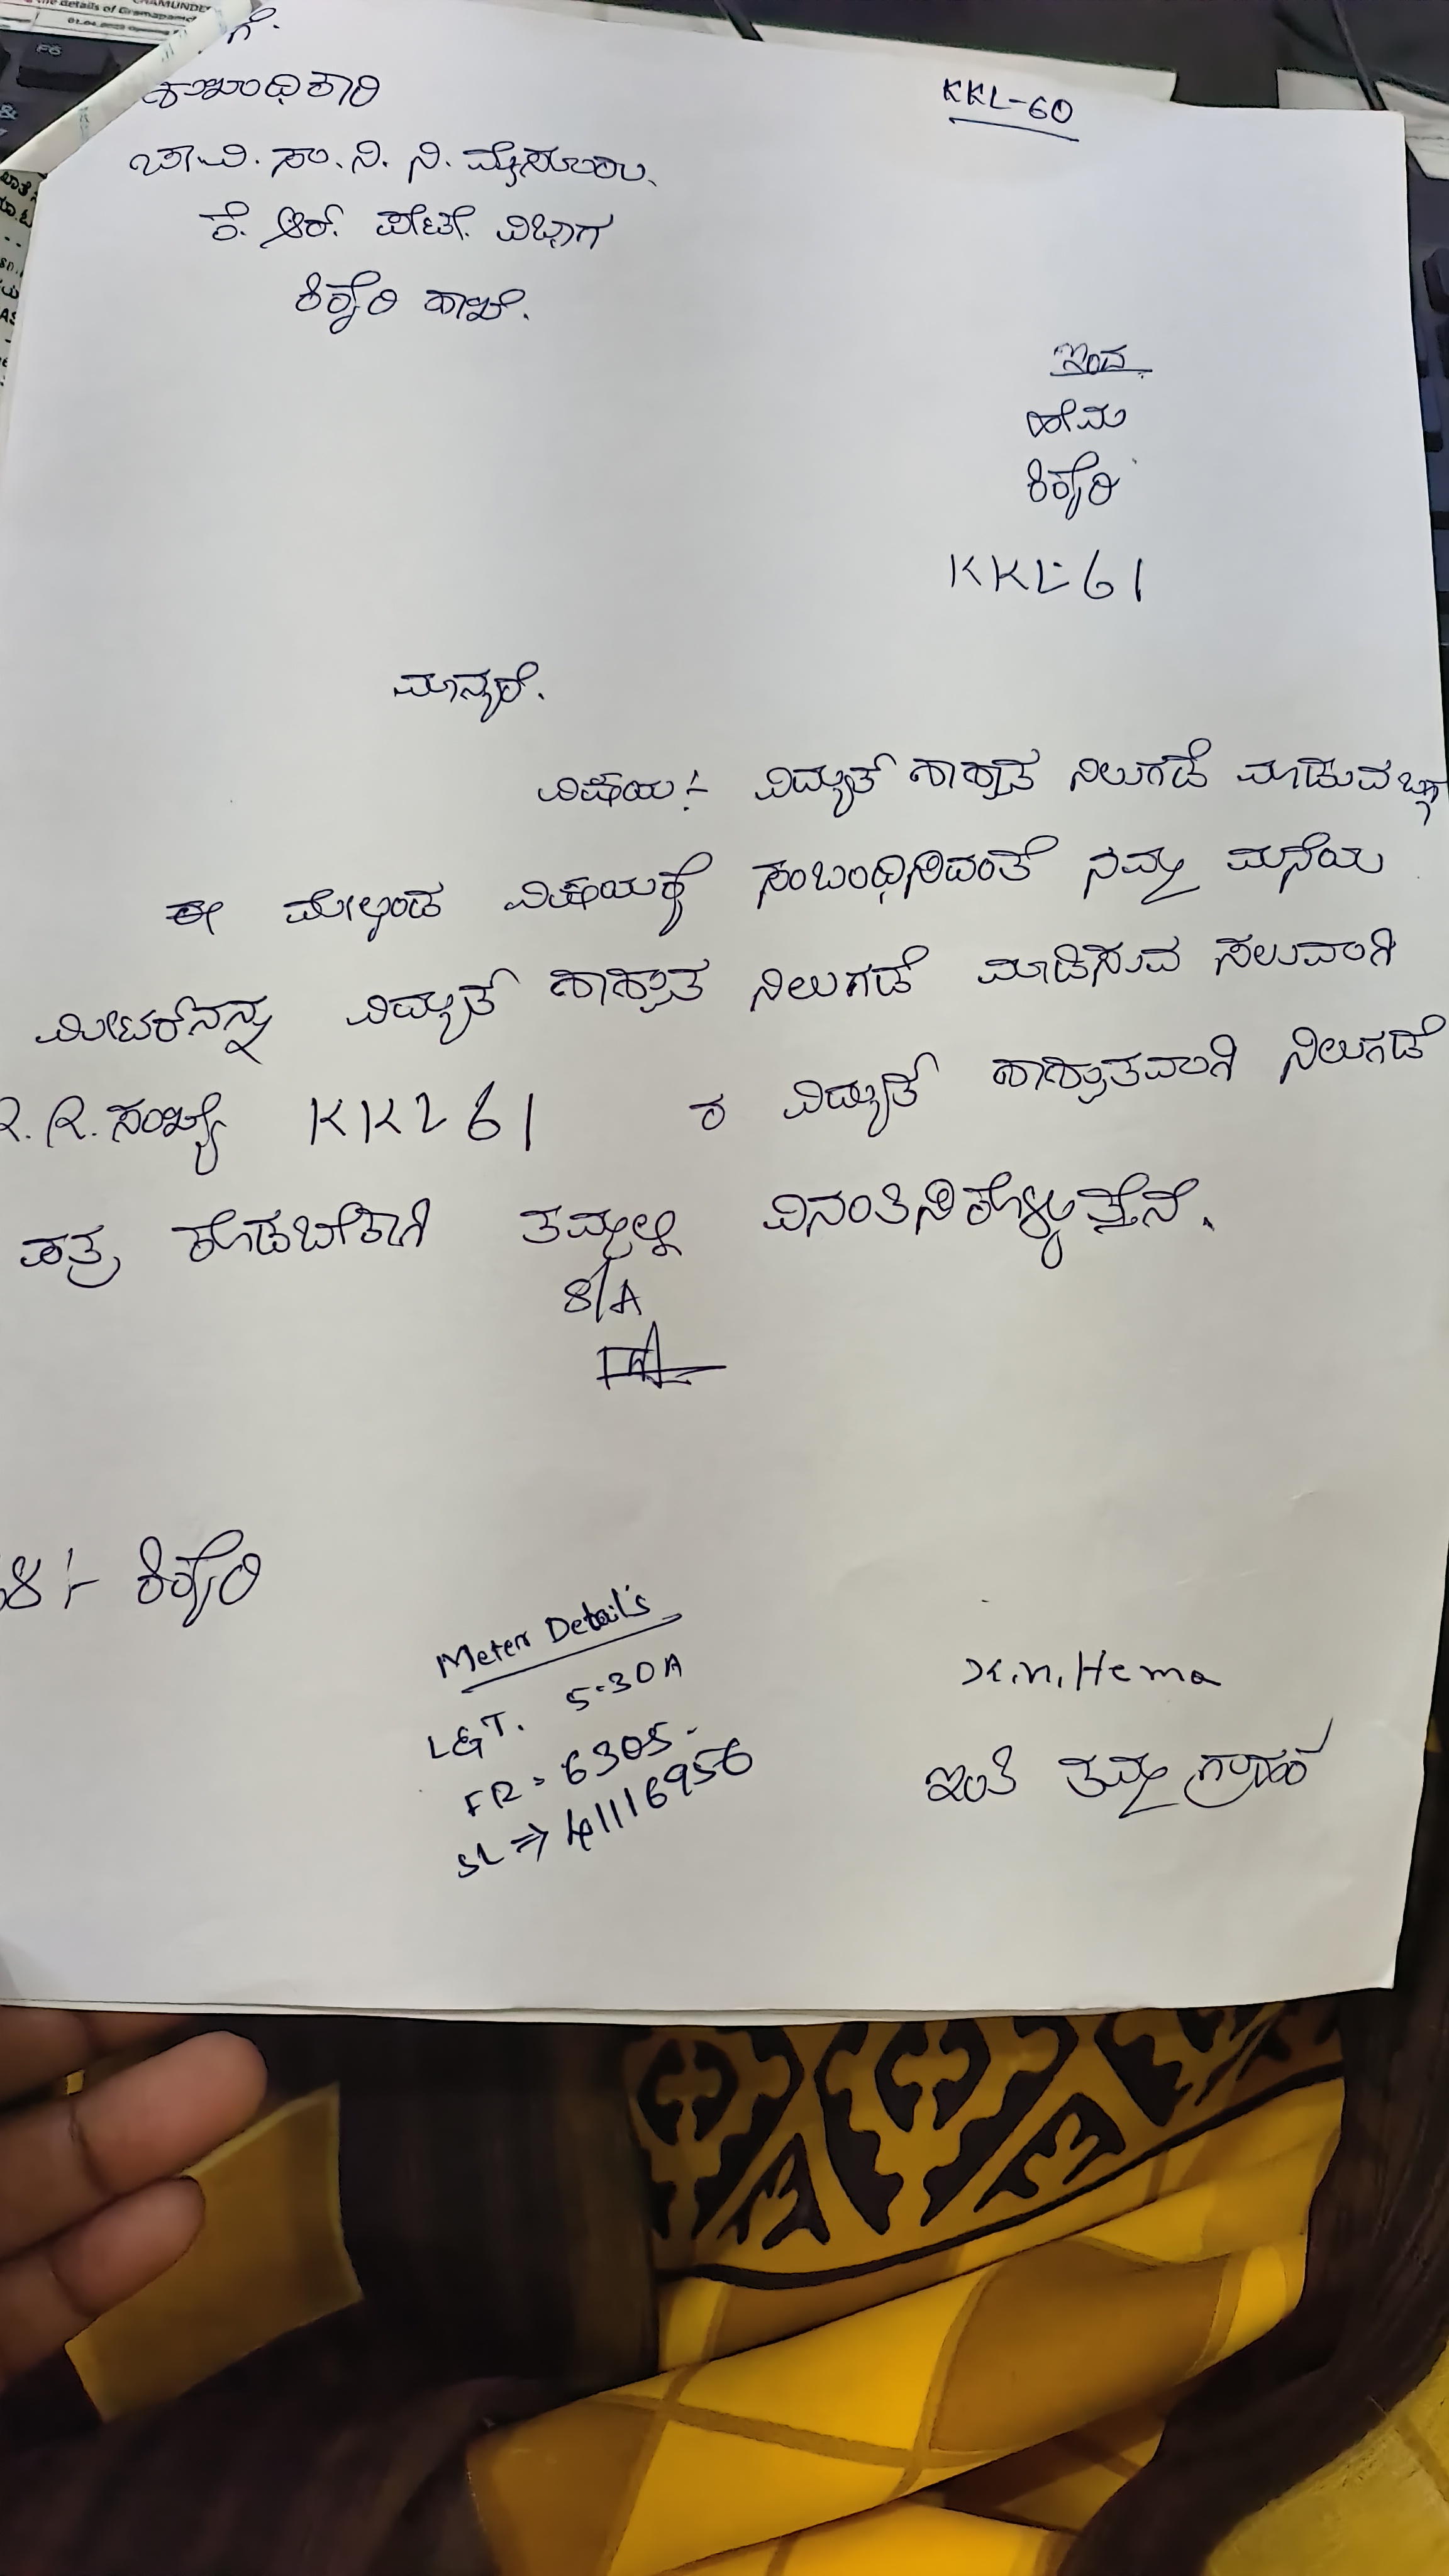 ಗೆ.
ಶಾಖಾಧಿಕಾರಿ
KKL-60
ಚಾ.ವಿ. ಸ.ಂ. ನಿ. ನಿ. ಮೈಸೂರು.
ಕೆ. ಆರ್. ಪೇಟೆ. ವಿಭಾಗ
ಕಿಕ್ಕೇರಿ ಶಾಖೆ.
ಇಂದ
ಹೇಮ
ಕಿಕ್ಕೇರಿ
KKL-61
ಮಾನ್ಯರೆ.
ವಿಷಯ:- ವಿದ್ಯುತ್ ಶಾಶ್ವತ ನಿಲುಗಡೆ ಮಾಡುವ ಬಗ್ಗೆ
ಈ ಮೇಲ್ಕಂಡ ವಿಷಯಕ್ಕೆ ಸಂಬಂಧಿಸಿದಂತೆ ನಮ್ಮ ಮನೆಯ
ಮೀಟರ್‌ನನ್ನು ವಿದ್ಯುತ್ ಶಾಶ್ವತ ನಿಲುಗಡೆ ಮಾಡಿಸುವ ಸಲುವಾಗಿ
R.R. ಸಂಖ್ಯೆ KKL 61 ರ ವಿದ್ಯುತ್ ಶಾಶ್ವತವಾಗಿ ನಿಲುಗಡೆ
ಪತ್ರ ಕೊಡಬೇಕಾಗಿ ತಮ್ಮಲ್ಲಿ ವಿನಂತಿಸಿಕೊಳ್ಳುತ್ತೇನೆ.
S/A
:- ಕಿಕ್ಕೇರಿ
Meter Details
L&T. 5-30A
FR = 6305
SL ⇒ 41116956
K.N. Hema
ಇಂತಿ ತಮ್ಮ ಗ್ರಾಹಕ